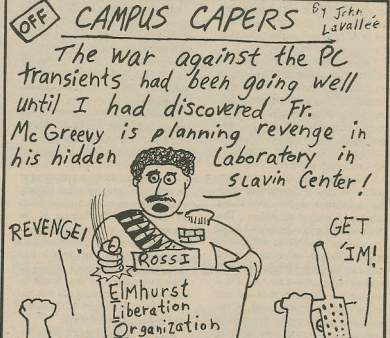 OFF
CAMPUS CAPERS
By John
Lavallée
The war against the PC
transients had been going well
until I had discovered Fr.
McGreevy is planning revenge in
his hidden Laboratory in
Slavin Center!
REVENGE!
GET
'IM!
ROSSI
Elmhurst
Liberation
Organization